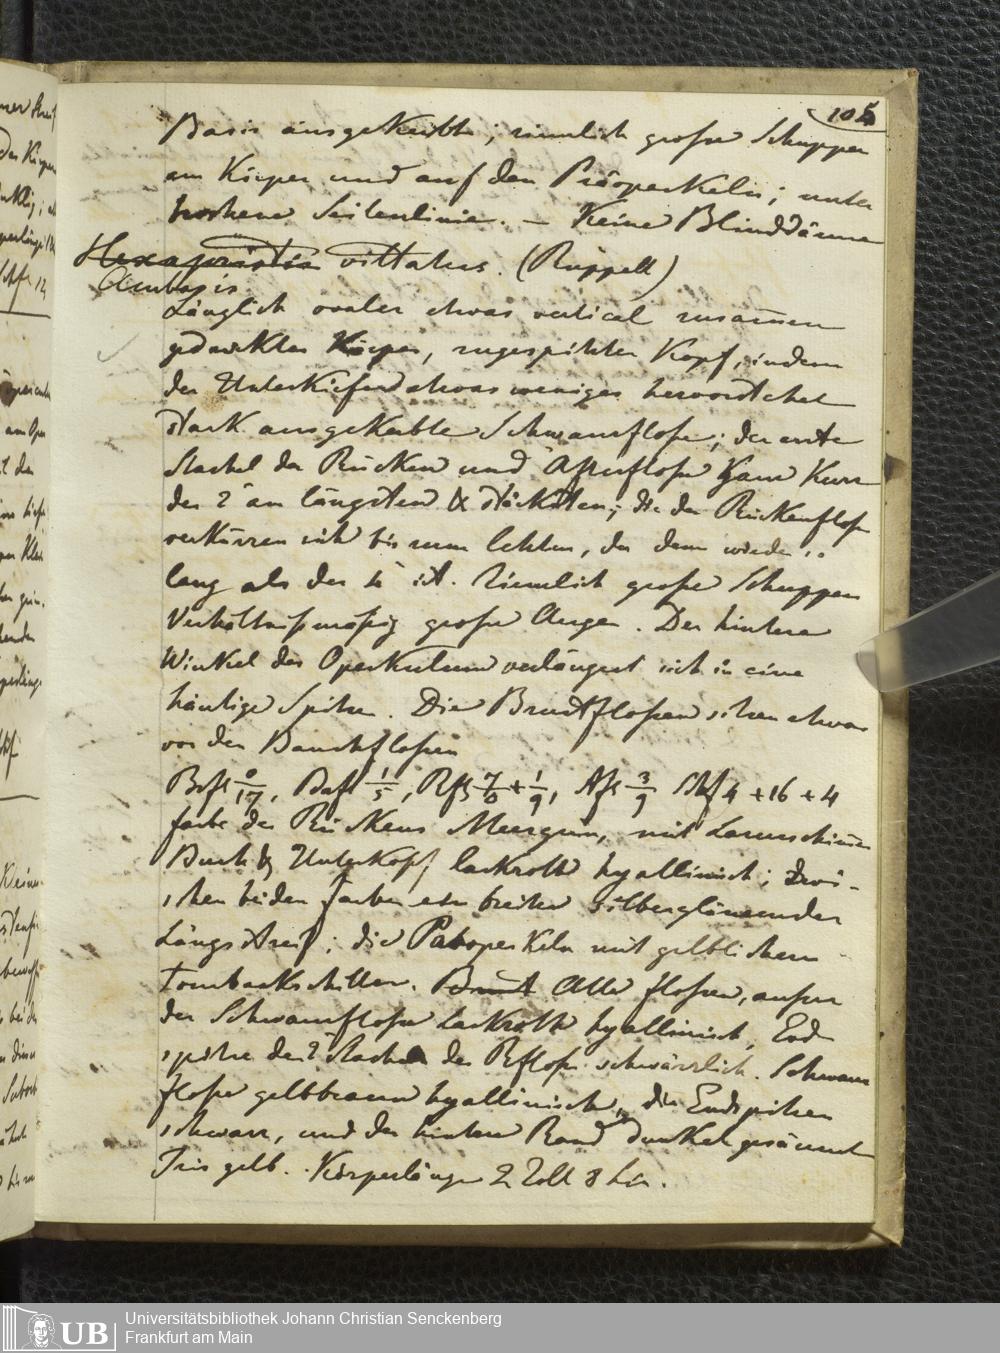 105
Basis ausgekerbt; ziemlich grosse Schuppen
am Körper und auf den Präoperkeln; unter
brochene Seitenlinie. – Keine Blinddärme
Hexapristis vittatus. (Rüppell)
Ambasis
Länglich ovaler etwas vertical zusamen
gedruckter Körper, zugespitzter Kopf, indem
der Unterkiefer etwas weniges hervorstehet
stark ausgekerbte Schwanzflosse; der erste
Stachel der Rücken und Afterflosse ganz kurz
der 2t am längsten & stärksten; die der Rückenflosse
verkürzen sich bis zum letzten, der dann wieder so
lang als der 4t ist. Ziemlich grosse Schuppen
Verhältnissmässig grosse Augen. Der hintere
Winkel des Operkulum verlängert sich in eine
häutige Spitze. Die Brustflossen sitzen etwas
vor den Bauchflossen
Brfl 0/17, Bafl 1/5, Rfl 7/0 + 1/9, Afl 3/9 Schfl 4 + 16 + 4
farbe des Rückens Meergrün, mit Lazurschim̄er
Bauch & Unterkopf lackroth hyallinisch; zwi-
schen beiden farben ein breiter silberglänzender
Längsstreif; die Präoperkeln mit gelblichem
Tombackschiller. Brust Alle flossen, ausser
der Schwanzflosse lackroth hyallinisch, End
spitze des 2t Stachel der Rflosse schwärzlich. Schwanz
flosse gelbbraun hyallinisch, die Endspitzen
schwarz, und der hintere Rand dunkel gesäumt
Iris gelb. Körperlänge 2 Zoll 8 Lin.
UB
Universitätsbibliothek Johann Christian Senckenberg
Frankfurt am Main